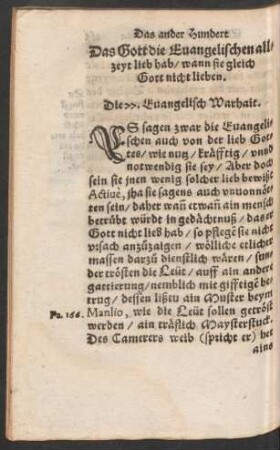 Das ander Hundert
Das Gott die Euangelischen all-
zeyt lieb hab / wann sie gleich
Gott nicht lieben.
Die 55. Euangelisch Warhait.
ES sagen zwar die Euangeli-
schen auch von der lieb Got-
tes / wie nutz / kräfftig / vnnd
notwendig sie sey / Aber doch
sein sie jnen wenig solcher lieb bewißt
Actiuè, jha sie sagens auch vnuonnö-
ten sein / daher wañ etwañ ain mensch
betrübt würdt in gedächtnuß / das er
Gott nicht lieb hab / so pflegē sie nicht
vrsach anzüzaigen / wölliche etlicher
massen darzü dienstlich wären / sun-
der trösten die Leüt / auff ain andere
gattierung / nemblich mit gifftigē be-
trug / dessen lißtu ain Muster beym
Pa. 166. Manlio, wie die Leüt sollen getröst
werden / ain träfflich Maysterstuck.
Des Camerers weib (spricht er) het
ains